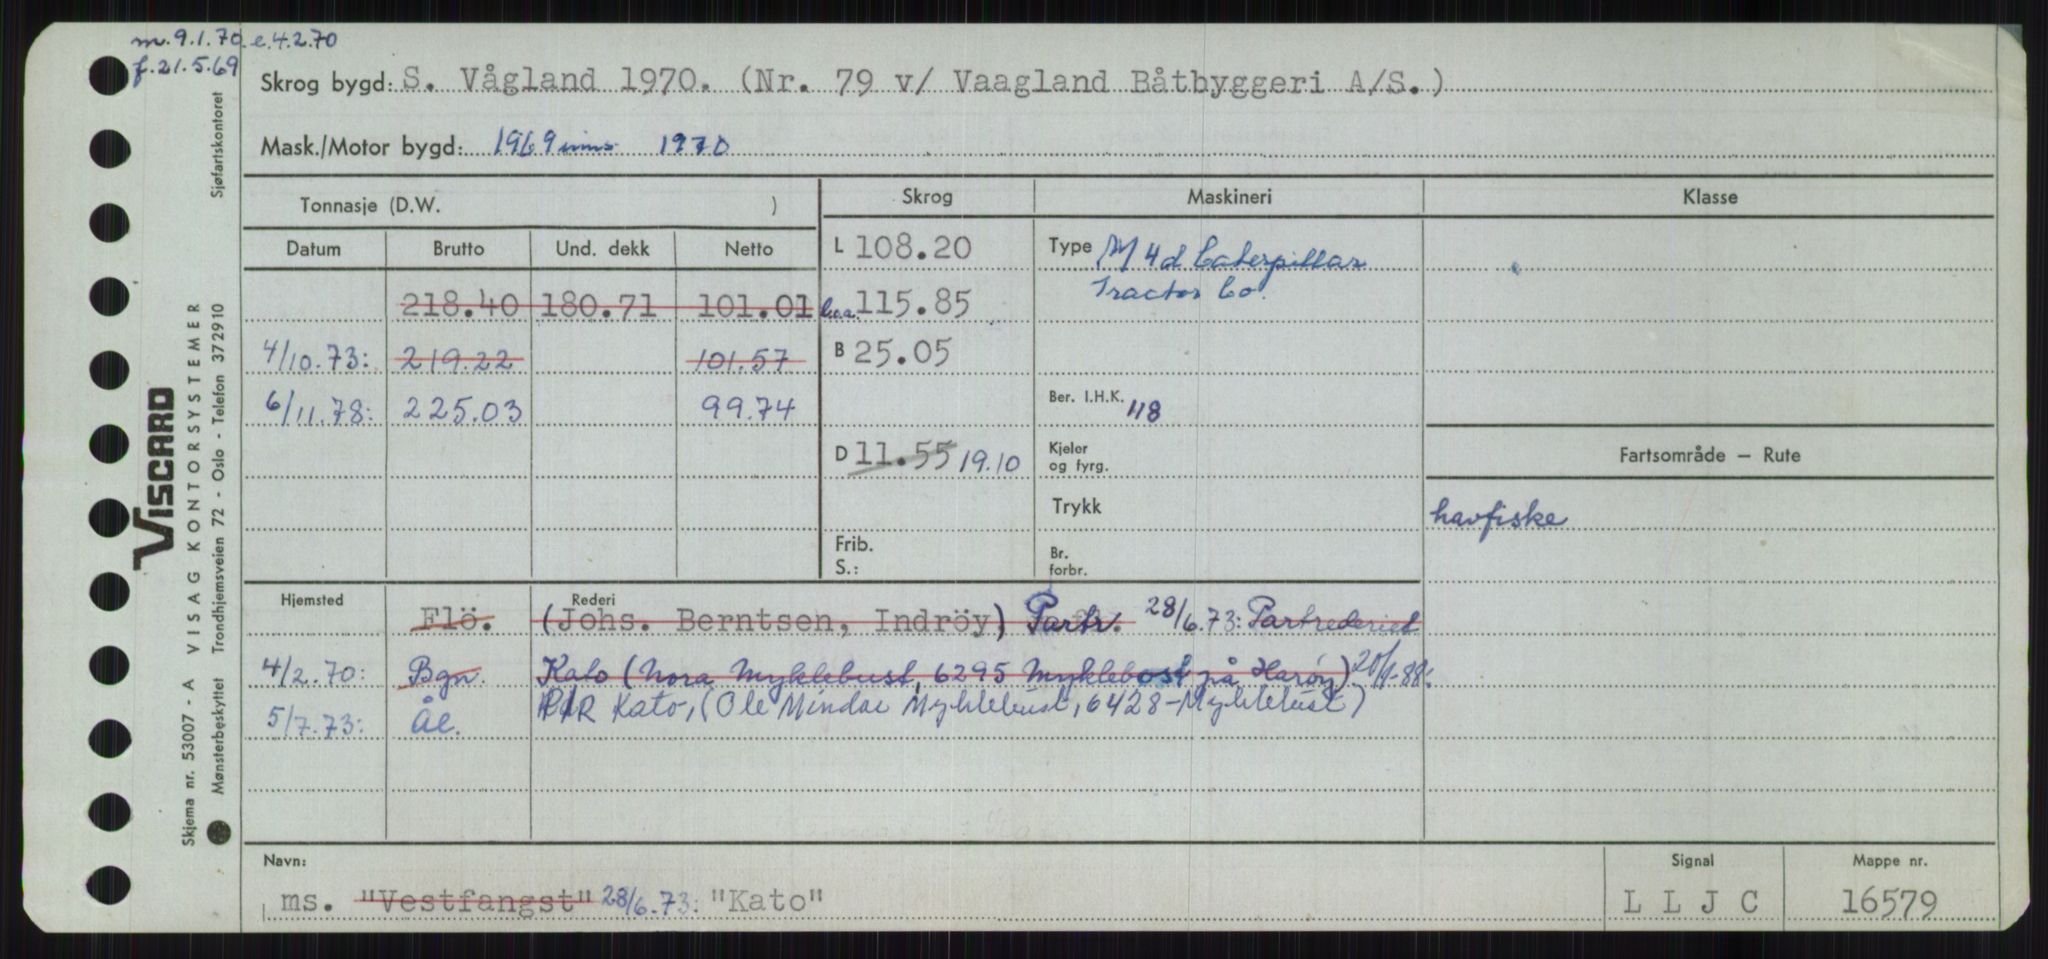 m. 9.1.70. e. 4.2.70
f. 21.5.69
Skrog bygd: S. Vågland 1970. (Nr. 79 v/ Vaagland Båtbyggeri A/S.)
Mask./Motor bygd: 1969 1970
Tonnasje (D.W. ) Skrog Maskineri Klasse
Datum Brutto Und. dekk Netto L 108.20 Type M 4d Caterpillar
Tractor Co.
218.40 180.71 101.01 l.o.a. 115.85
4/10.73: 219.22 101.57 B 25.05
6/11.78: 225.03 99.74 Ber. I.H.K. 118
D 11.55 19.10 Kjeler
og fyrg.
Fartsområde – Rute
Trykk havfiske
Frib.
S.: Br.
forbr.
Hjemsted Rederi
Flö. (Johs. Berntsen, Indröy) Partr. 28/6.73: Partrederiet
4/2.70: Bgn. Kato (Nora Myklebust, 6295 Myklebost på Harøy) 20/1-88:
5/7.73: Ål. P/R Kato, (Ole Mindor Myklebust, 6428-Myklebust)
Navn: Signal Mappe nr.
ms. "Vestfangst" 28/6.73: "Kato" L L J C 16579
Sjøfartskontoret
VISCARD
Skjema nr. 53007 - A VISAG KONTORSYSTEMER
Mønsterbeskyttet Trondhjemsveien 72 - Oslo - Telefon 372910